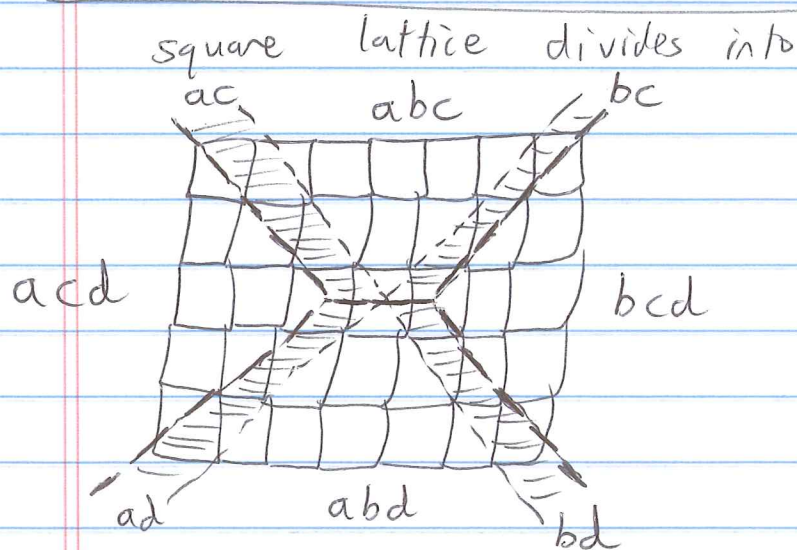 square lattice divides into
ac abc bc
acd bcd
ad abd bd